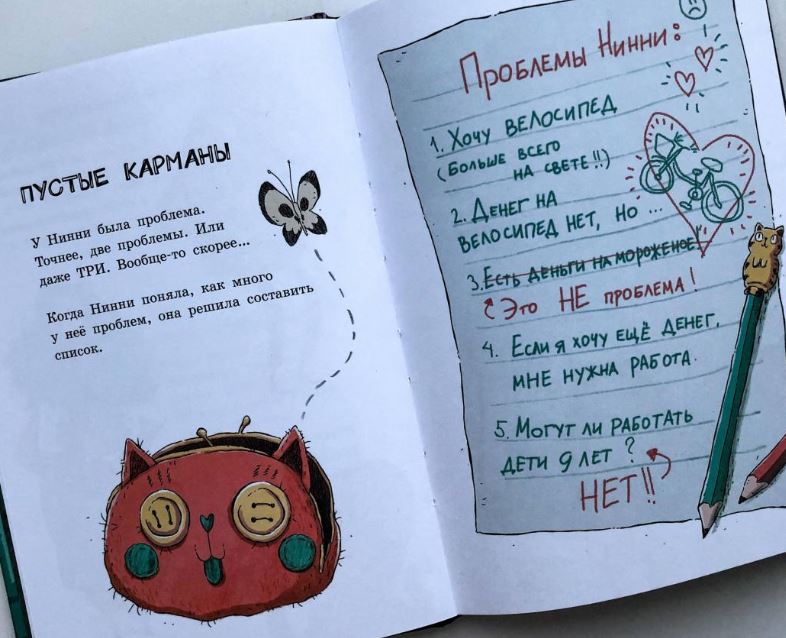 ПУСТЫЕ КАРМАНЫ
У Нинни была проблема.
Точнее, две проблемы. Или
даже ТРИ. Вообще-то скорее...
Когда Нинни поняла, как много
у неё проблем, она решила составить
список.
Проблемы Нинни:
1. Хочу велосипед
(больше всего
на свете!!)
2. Денег на
велосипед нет, но ...
3. Есть деньги на мороженое!
Это НЕ проблема!
4. Если я хочу ещё денег,
мне нужна работа.
5. Могут ли работать
дети 9 лет?
НЕТ!!